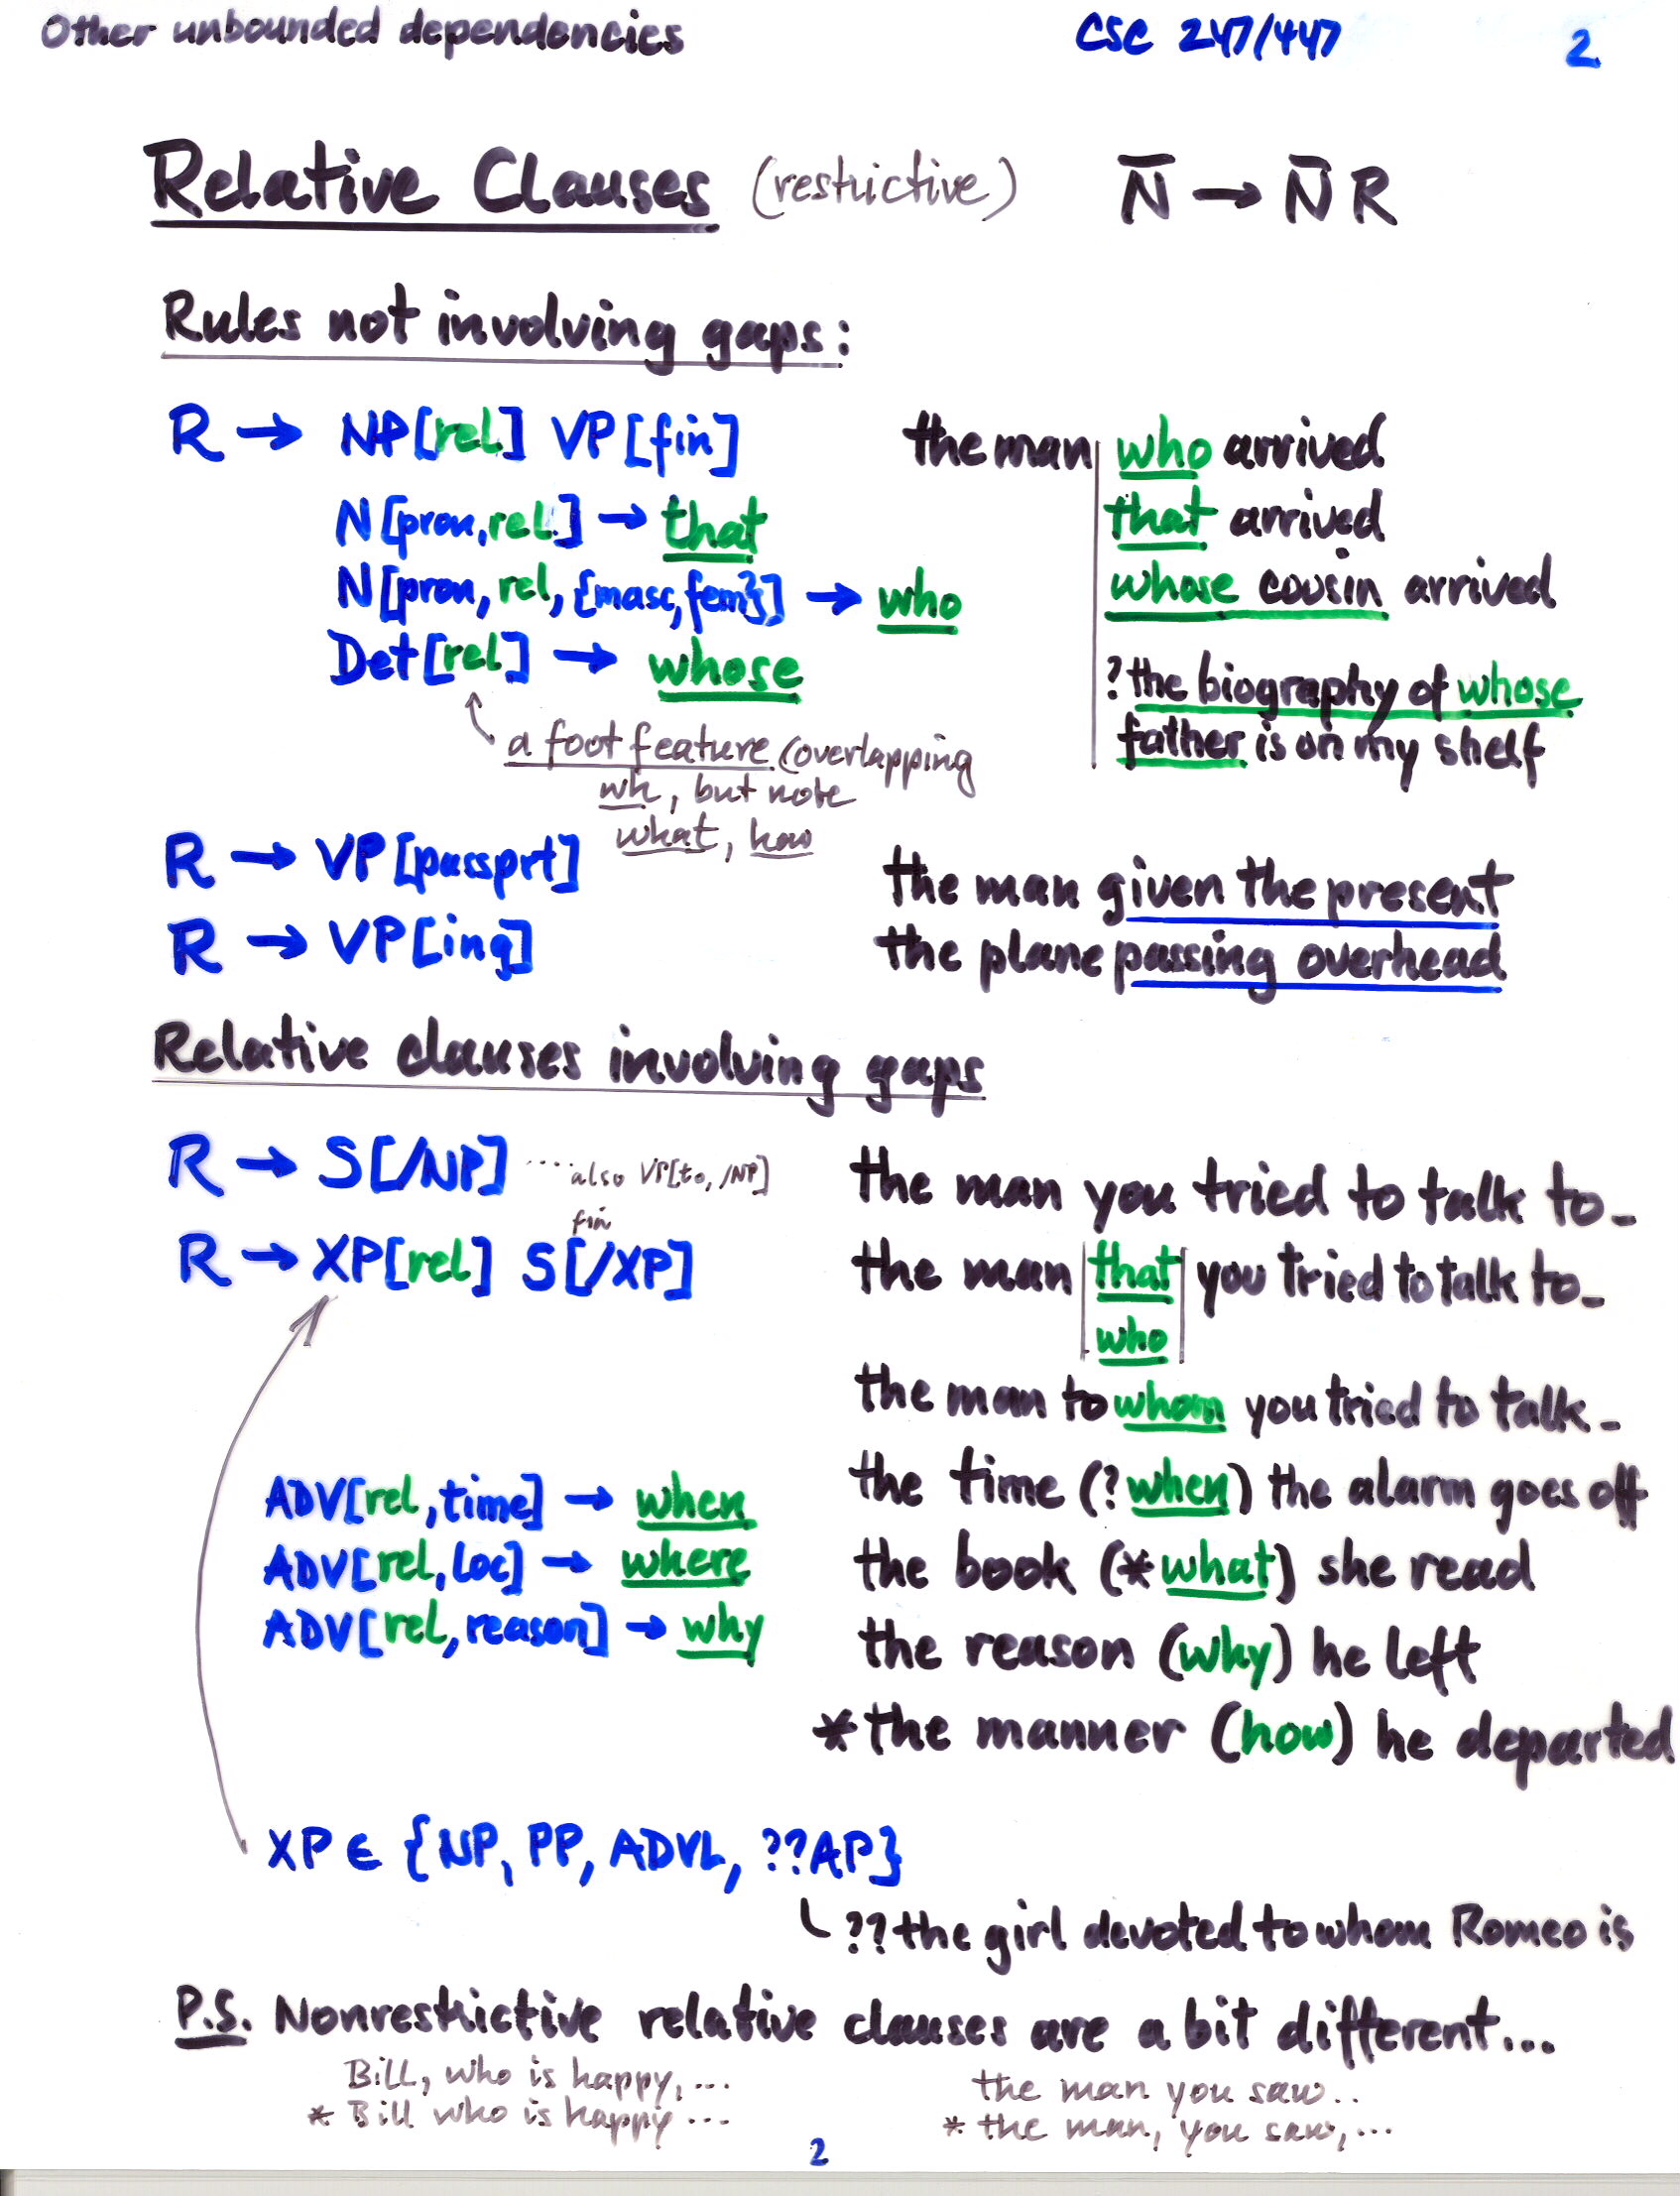 Other unbounded dependencies CSC 247/447 2
Relative Clauses (restrictive) N̄ → N̄ R
Rules not involving gaps:
R → NP[rel] VP[fin] the man who arrived
N[pron,rel] → that that arrived
N[pron, rel, {masc,fem}] → who whose cousin arrived
Det[rel] → whose ?the biography of whose
father is on my shelf
a foot feature (overlapping
wh, but note
what, how
R → VP[passprt] the man given the present
R → VP[ing] the plane passing overhead
Relative clauses involving gaps
R → S[/NP] ....also VP[to, /NP] the man you tried to talk to_
fin
R → XP[rel] S[/XP] the man that you tried to talk to_
who
the man to whom you tried to talk_
ADV[rel,time] → when the time (?when) the alarm goes off
ADV[rel,loc] → where the book (*what) she read
ADV[rel,reason] → why the reason (why) he left
*the manner (how) he departed
XP ∈ {NP, PP, ADVL, ??AP}
??the girl devoted to whom Romeo is
P.S. Nonrestrictive relative clauses are a bit different...
Bill, who is happy, ... the man you saw..
* Bill who is happy ... * the man, you saw, ...
2